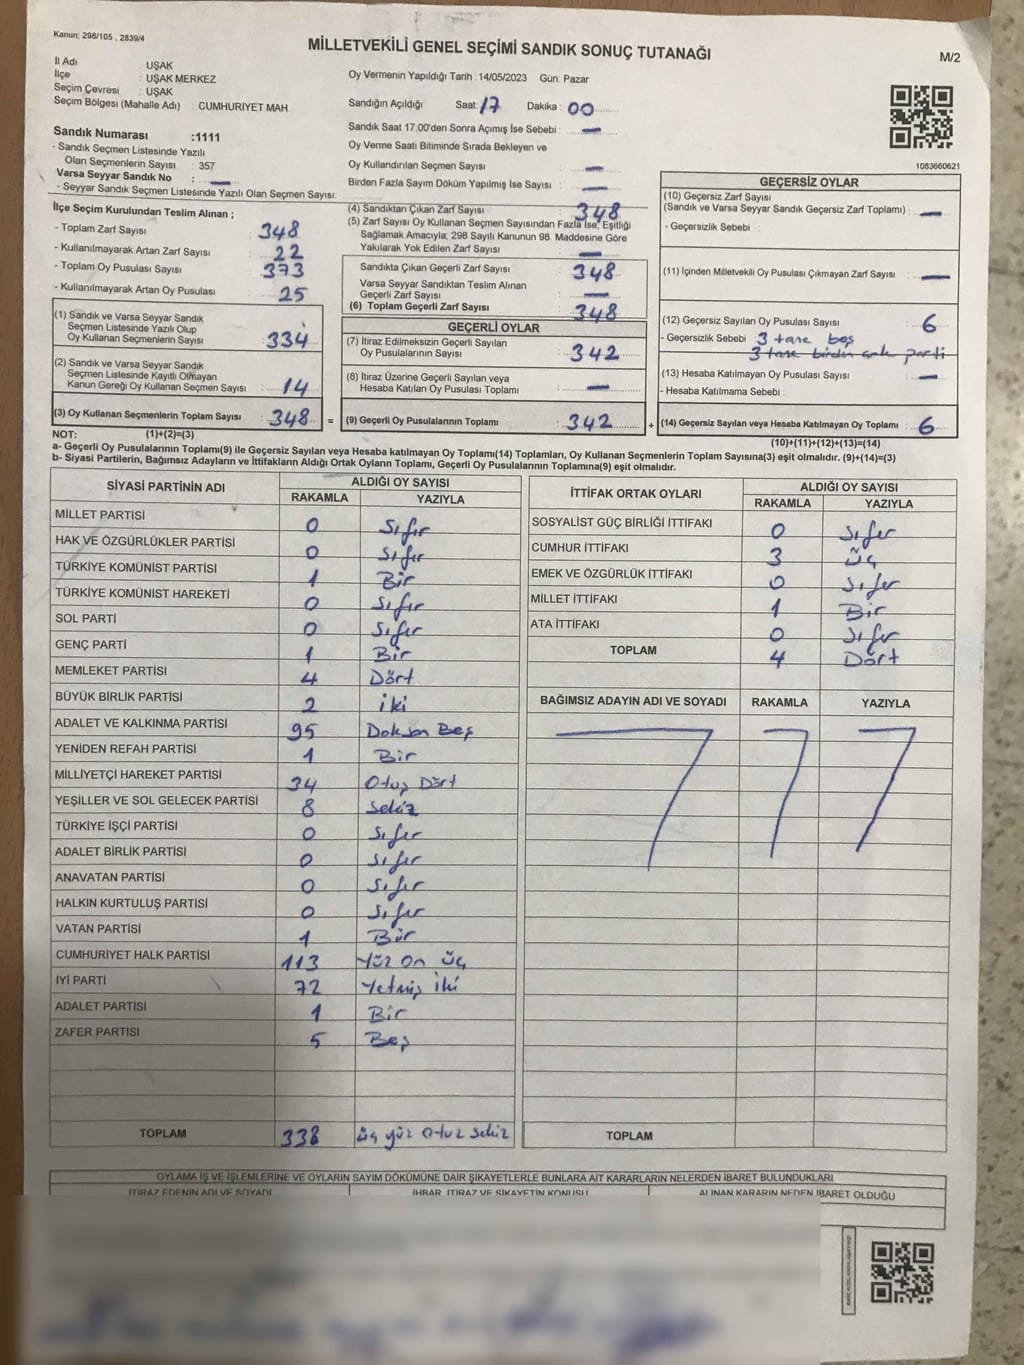 Kanun: 298/105 , 2839/4
MİLLETVEKİLİ GENEL SEÇİMİ SANDIK SONUÇ TUTANAĞI
M/2
İl Adı : UŞAK
İlçe : UŞAK MERKEZ
Seçim Çevresi : UŞAK
Seçim Bölgesi (Mahalle Adı) : CUMHURİYET MAH
Sandık Numarası :1111
- Sandık Seçmen Listesinde Yazılı
Olan Seçmenlerin Sayısı : 357
Varsa Seyyar Sandık No : —
- Seyyar Sandık Seçmen Listesinde Yazılı Olan Seçmen Sayısı:
Oy Vermenin Yapıldığı Tarih : 14/05/2023 Gün: Pazar
Sandığın Açıldığı Saat: 17 Dakika : 00
Sandık Saat 17:00'den Sonra Açımış İse Sebebi : —
Oy Verme Saati Bitiminde Sırada Bekleyen ve
Oy Kullandırılan Seçmen Sayısı : —
Birden Fazla Sayım Döküm Yapılmış İse Sayısı : —
1083660621
İlçe Seçim Kurulundan Teslim Alınan ;
- Toplam Zarf Sayısı : 348
- Kullanılmayarak Artan Zarf Sayısı : 22
- Toplam Oy Pusulası Sayısı : 373
- Kullanılmayarak Artan Oy Pusulası : 25
(1) Sandık ve Varsa Seyyar Sandık
Seçmen Listesinde Yazılı Olup
Oy Kullanan Seçmenlerin Sayısı : 334
(2) Sandık ve Varsa Seyyar Sandık
Seçmen Listesinde Kayıtlı Olmayan
Kanun Gereği Oy Kullanan Seçmen Sayısı : 14
(3) Oy Kullanan Seçmenlerin Toplam Sayısı : 348 =
(4) Sandıktan Çıkan Zarf Sayısı : 348
(5) Zarf Sayısı Oy Kullanan Seçmen Sayısından Fazla İse, Eşitliği
Sağlamak Amacıyla, 298 Sayılı Kanunun 98. Maddesine Göre
Yakılarak Yok Edilen Zarf Sayısı : —
Sandıkta Çıkan Geçerli Zarf Sayısı : 348
Varsa Seyyar Sandıktan Teslim Alınan
Geçerli Zarf Sayısı : —
(6) Toplam Geçerli Zarf Sayısı : 348
GEÇERLİ OYLAR
(7) İtiraz Edilmeksizin Geçerli Sayılan
Oy Pusulalarının Sayısı : 342
(8) İtiraz Üzerine Geçerli Sayılan veya
Hesaba Katılan Oy Pusulaları Toplamı : —
(9) Geçerli Oy Pusulalarının Toplamı : 342 +
GEÇERSİZ OYLAR
(10) Geçersiz Zarf Sayısı
(Sandık ve Varsa Seyyar Sandık Geçersiz Zarf Toplamı) : —
- Geçersizlik Sebebi :
(11) İçinden Milletvekili Oy Pusulası Çıkmayan Zarf Sayısı : —
(12) Geçersiz Sayılan Oy Pusulası Sayısı : 6
- Geçersizlik Sebebi : 3 tane boş
3 tane birden çok parti
(13) Hesaba Katılmayan Oy Pusulası Sayısı : —
- Hesaba Katılmama Sebebi :
(14) Geçersiz Sayılan veya Hesaba Katılmayan Oy Toplamı : 6
NOT: (1)+(2)=(3)
(10)+(11)+(12)+(13)=(14)
a- Geçerli Oy Pusulalarının Toplamı(9) ile Geçersiz Sayılan veya Hesaba katılmayan Oy Toplamı(14) Toplamları, Oy Kullanan Seçmenlerin Toplam Sayısına(3) eşit olmalıdır. (9)+(14)=(3)
b- Siyasi Partilerin, Bağımsız Adayların ve İttifakların Aldığı Ortak Oyların Toplamı, Geçerli Oy Pusulalarının Toplamına(9) eşit olmalıdır.
SİYASİ PARTİNİN ADI ALDIĞI OY SAYISI
RAKAMLA YAZIYLA
MİLLET PARTİSİ 0 Sıfır
HAK VE ÖZGÜRLÜKLER PARTİSİ 0 Sıfır
TÜRKİYE KOMÜNİST PARTİSİ 1 Bir
TÜRKİYE KOMÜNİST HAREKETİ 0 Sıfır
SOL PARTİ 0 Sıfır
GENÇ PARTİ 1 Bir
MEMLEKET PARTİSİ 4 Dört
BÜYÜK BİRLİK PARTİSİ 2 iki
ADALET VE KALKINMA PARTİSİ 95 Doksan Beş
YENİDEN REFAH PARTİSİ 1 Bir
MİLLİYETÇİ HAREKET PARTİSİ 34 Otuz Dört
YEŞİLLER VE SOL GELECEK PARTİSİ 8 Sekiz
TÜRKİYE İŞÇİ PARTİSİ 0 Sıfır
ADALET BİRLİK PARTİSİ 0 Sıfır
ANAVATAN PARTİSİ 0 Sıfır
HALKIN KURTULUŞ PARTİSİ 0 Sıfır
VATAN PARTİSİ 1 Bir
CUMHURİYET HALK PARTİSİ 113 Yüz On Üç
İYİ PARTİ 72 Yetmiş İki
ADALET PARTİSİ 1 Bir
ZAFER PARTİSİ 5 Beş
TOPLAM 338 Üç yüz Otuz Sekiz
İTTİFAK ORTAK OYLARI ALDIĞI OY SAYISI
RAKAMLA YAZIYLA
SOSYALİST GÜÇ BİRLİĞİ İTTİFAKI 0 Sıfır
CUMHUR İTTİFAKI 3 Üç
EMEK VE ÖZGÜRLÜK İTTİFAKI 0 Sıfır
MİLLET İTTİFAKI 1 Bir
ATA İTTİFAKI 0 Sıfır
TOPLAM 4 Dört
BAĞIMSIZ ADAYIN ADI VE SOYADI RAKAMLA YAZIYLA
TOPLAM
OYLAMA İŞ VE İŞLEMLERİNE VE OYLARIN SAYIM DÖKÜMÜNE DAİR ŞİKAYETLERLE BUNLARA AİT KARARLARIN NELERDEN İBARET BULUNDUKLARI
İTİRAZ EDENİN ADI VE SOYADI İHBAR, İTİRAZ VE ŞİKAYETİN KONUSU ALINAN KARARIN NEDEN İBARET OLDUĞU